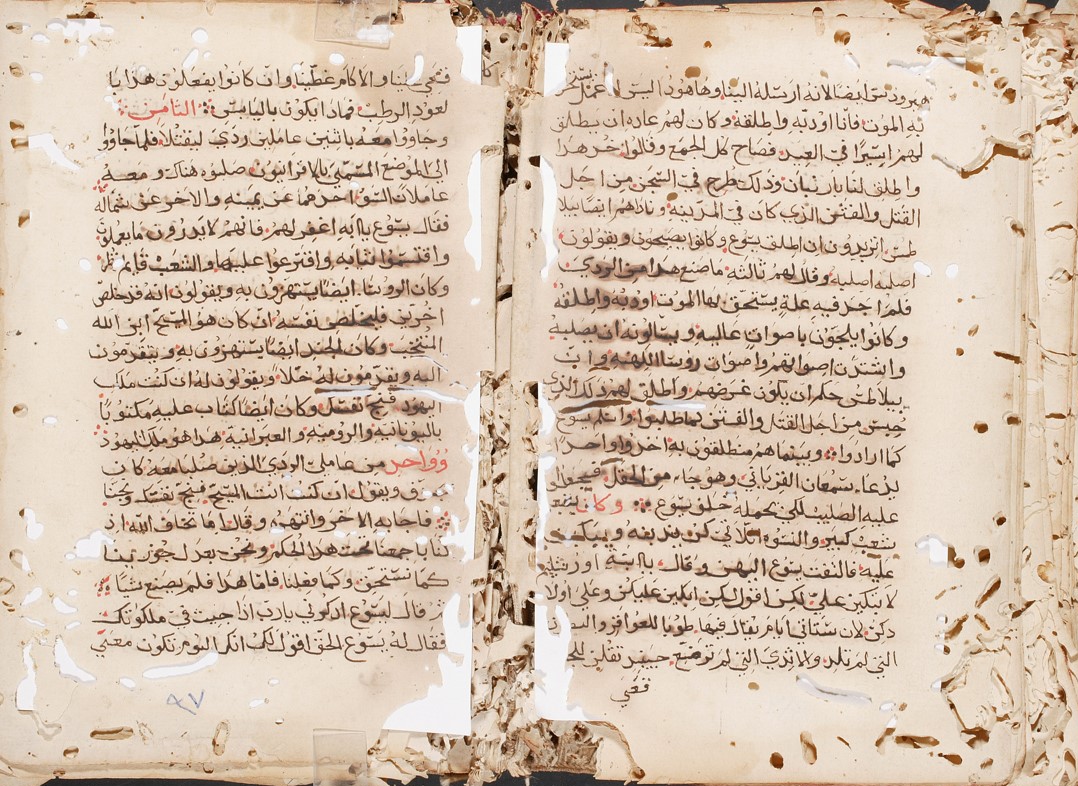 هيرودس ايضا لانه ارسله الينا وها هوذا ليس له عمل يستحق
به الموت فانا اودبه واطلقه وكان لهم عاده ان يطلق
لهم اسيرًا في العيد فصاح كل الجمع وقالوا خذ هذا
واطلق لنا باراباس وذلك طرح في السجن من اجل
القتل والفتنة الذي كان في المدينه وناداهم ايضا بيلا
طس اتريدون ان اطلق يسوع وكانوا يصيحون ويقولون
اصلبه اصلبه وقال لهم ثالثة ما صنع هذا من الردي
فلم اجد فيه علة يستحق بها الموت اودبه واطلقه
وكانوا يلجون باصوات عاليه ويسالونه ان يصلبه
واشتدت اصواتهم واصوات روسا الكهنه وان
بيلاطس حكم ان يكون غرضهم واطلق لهم ذلك الذي
حبس من اجل القتل والفتن كما طلبوا واسلم يسوع
كما ارادوا وبينما هم منطلقون به اخذوا واحدًا
يدعا سمعان القرياني وهو جاء من الحقل فجعلوا
عليه الصليب لكي يحمله خلق يسوع وكان يتبعه
شعب كبير والنسوه اللاتي كن يندبنه ويبكين
عليه فالتفت يسوع اليهن وقال يا بنات اورشليم
لا تبكين علي لكن اقول لكن ابكين عليكن وعلي اولا
دكن لان ستاتي ايام يقال فيها طوبا للعواقر والبطون
التي لم تلد والاثدي التي لم ترضع حينيذ تقلن للجبال
قعي
فقعي علينا وللاكام غطينا وان كانوا يفعلون هذا با
لعود الرطب فماذا يكون باليابس الثامن
وجاووا معه باثنين عاملين ردي ليقتلا فلما جاووا
الى الموضع المسمى بالاقرانيون صلبوه هناك ومعه
عاملان السو احدهما عن يمينه والاخر عن شماله
فقال يسوع يا ابه اغفر لهم فانهم لا يدرون ما يعملون
واقتسموا ثيابه واقترعوا عليها والشعب قايم ينظر
وكان الروسا ايضا يستهزون به ويقولون انه قد خلص
اخرين فليخلص نفسه ان كان هو المسيح ابن الله
المنتخب وكان الجند ايضا يستهزون به ويتقدمون
اليه ويقدمون له خلا ويقولون له ان كنت ملك
اليهود فنج نفسك وكان ايضا كتاب عليه مكتوبًا
باليونانيه والروميه والعبرانيه هذا هو ملك اليهود
وواحد من عاملي الردي الذين صلبا معه كان
يجدف ويقول ان كنت انت المسيح فنج نفسك ونجنا
فاجابه الاخر وانتهره وقال اما تخاف الله اذ
كنا باجمعنا تحت هذا الحكم ونحن بعدل جوزينا
كما نستحق وكما فعلنا فاما هذا فلم يصنع شيا
ثم قال ليسوع اذكرني يا رب اذا جيت في ملكوتك
فقال له يسوع الحق اقول لك انك اليوم تكون معي
٩٧